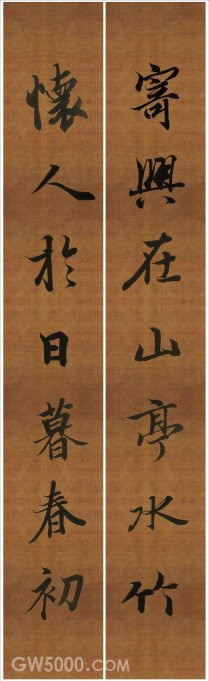 寄興在山亭水竹
懷人於日暮春初
GW5000.COM